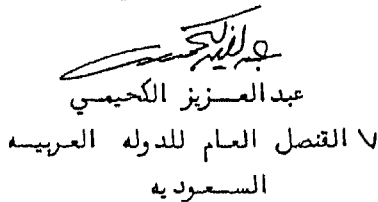 عبدالعزيز الكحيمي
٧ القنصل العام للدوله العربيه
السعوديه